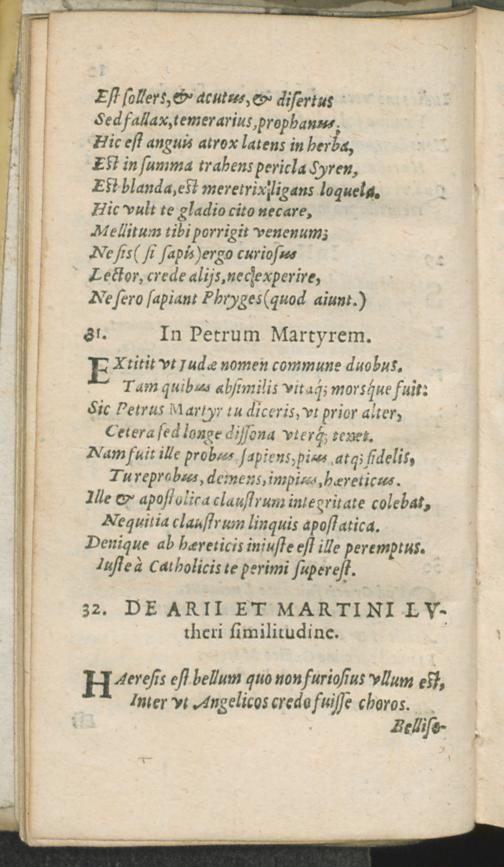 Est sollers, & acutus, & disertus
Sed fallax, temerarius, prophanus,
Hic est anguis atrox latens in herba,
Est in summa trahens pericla Syren,
Est blanda, est meretrix ligans loquela.
Hic vult te gladio cito necare,
Mellitum tibi porrigit venenum;
Ne sis (si sapis) ergo curiosus
Lector, crede alijs, nec experire,
Ne sero sapiant Phryges (quod aiunt.)
31. In Petrum Martyrem.
EXtitit vt Iudæ nomen commune duobus.
Tam quibus absimilis vitaq; morsque fuit:
Sic Petrus Martyr tu diceris, vt prior alter,
Cetera sed longe dissona vterq; tenet.
Nam fuit ille probus, sapiens, pius, atq; fidelis,
Tu reprobus, demens, impius, hæreticus.
Ille & apostolica claustrum integritate colebat,
Nequitia claustrum linquis apostatica.
Denique ab hæreticis iniuste est ille peremptus.
Iuste à Catholicis te perimi superest.
32. DE ARII ET MARTINI LV-
theri similitudine.
HAeresis est bellum quo non furiosius vllum est,
Inter vt Angelicos credo fuisse choros.
Belliso-